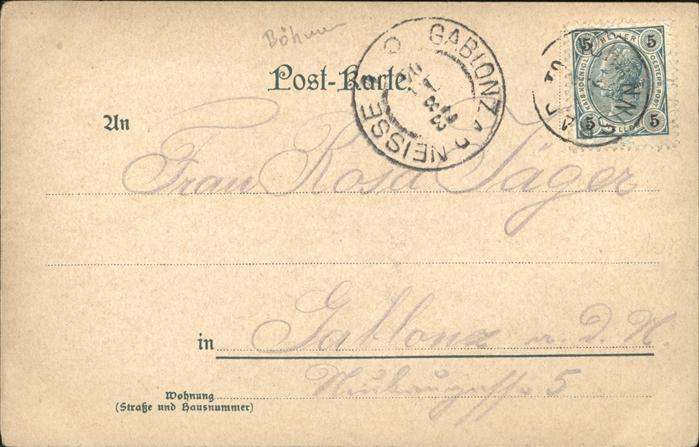 Böhmen
Post-Karte.
GABLONZ A.D. NEISSE
5 HELLER 5
5 5
An
Frau Rosa Jäger
in Gablonz a. d. N.
5
Wohnung
(Straße und Hausnummer)